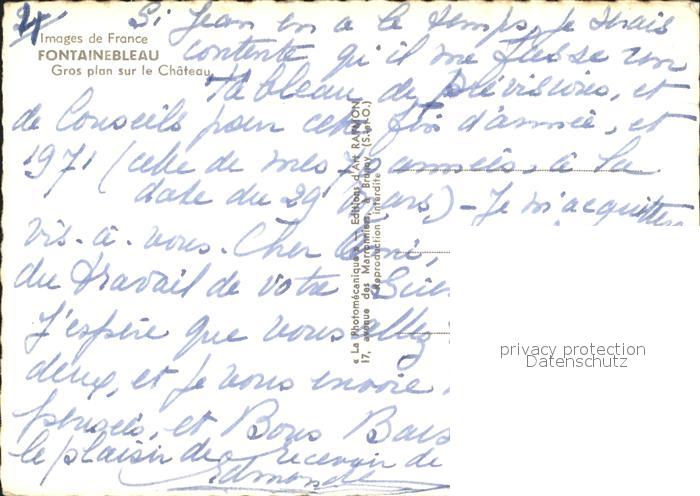 2
Si Jean en a le temps, je serais
Images de France
FONTAINEBLEAU
Gros plan sur le Château
contente qu'il me fasse un
tableau de prévisions, et
de Conseils pour cette fin d'année, et
1971 (celle de mes années, à la
date du 29 Mars) - Je m'acquitterai
vis-à-vous Cher
du travail de votre
J'espère que vous allez
deux, et je vous envoie
pensées, et Bons Bais
le plaisir de recevoir de
Edmonde
« La Photomécanique » — Editions d'Art RAYMON
17, avenue des Marronniers, à Brunoy (S.-et-O.)
Reproduction interdite
privacy protection
Datenschutz